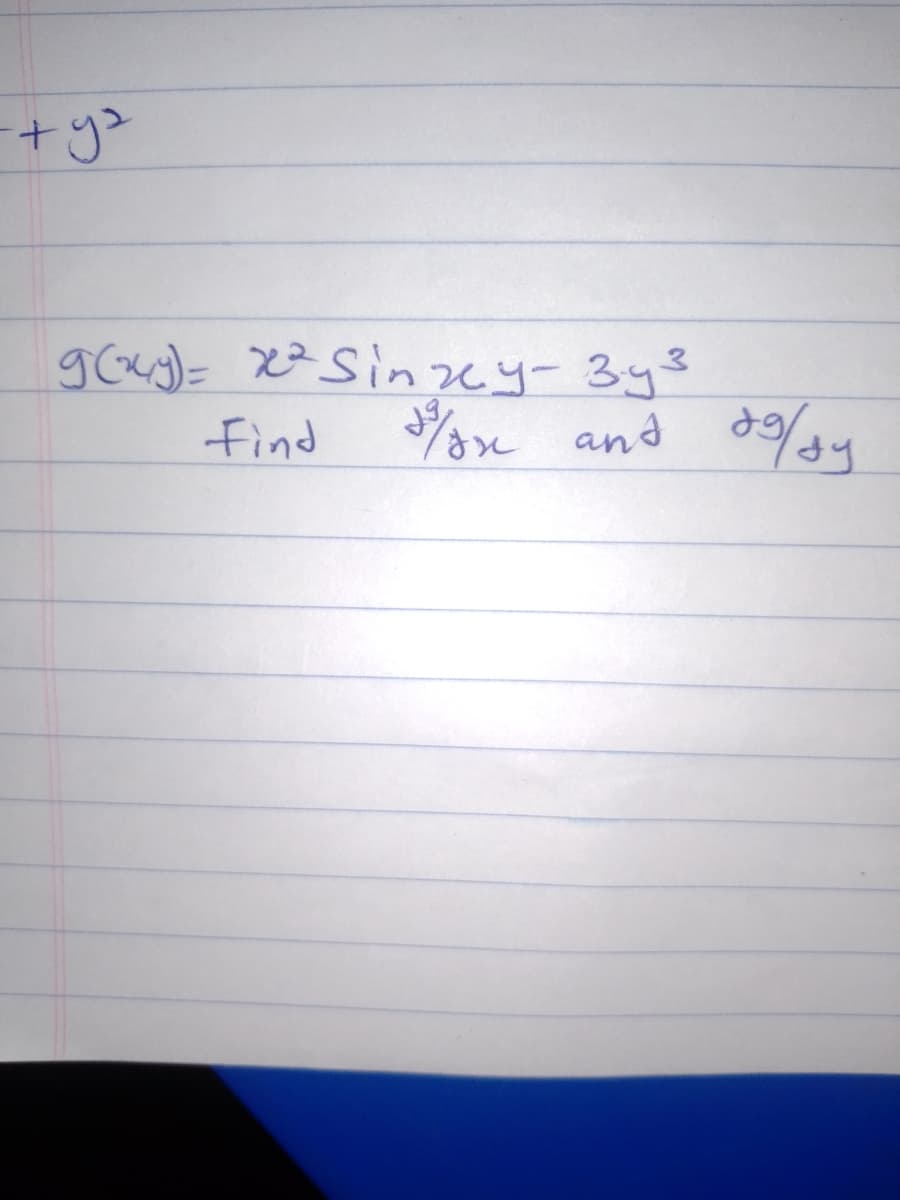 + y²
g(x,y) = x² Sin xy - 3y³
Find ∂g/∂x and ∂g/∂y